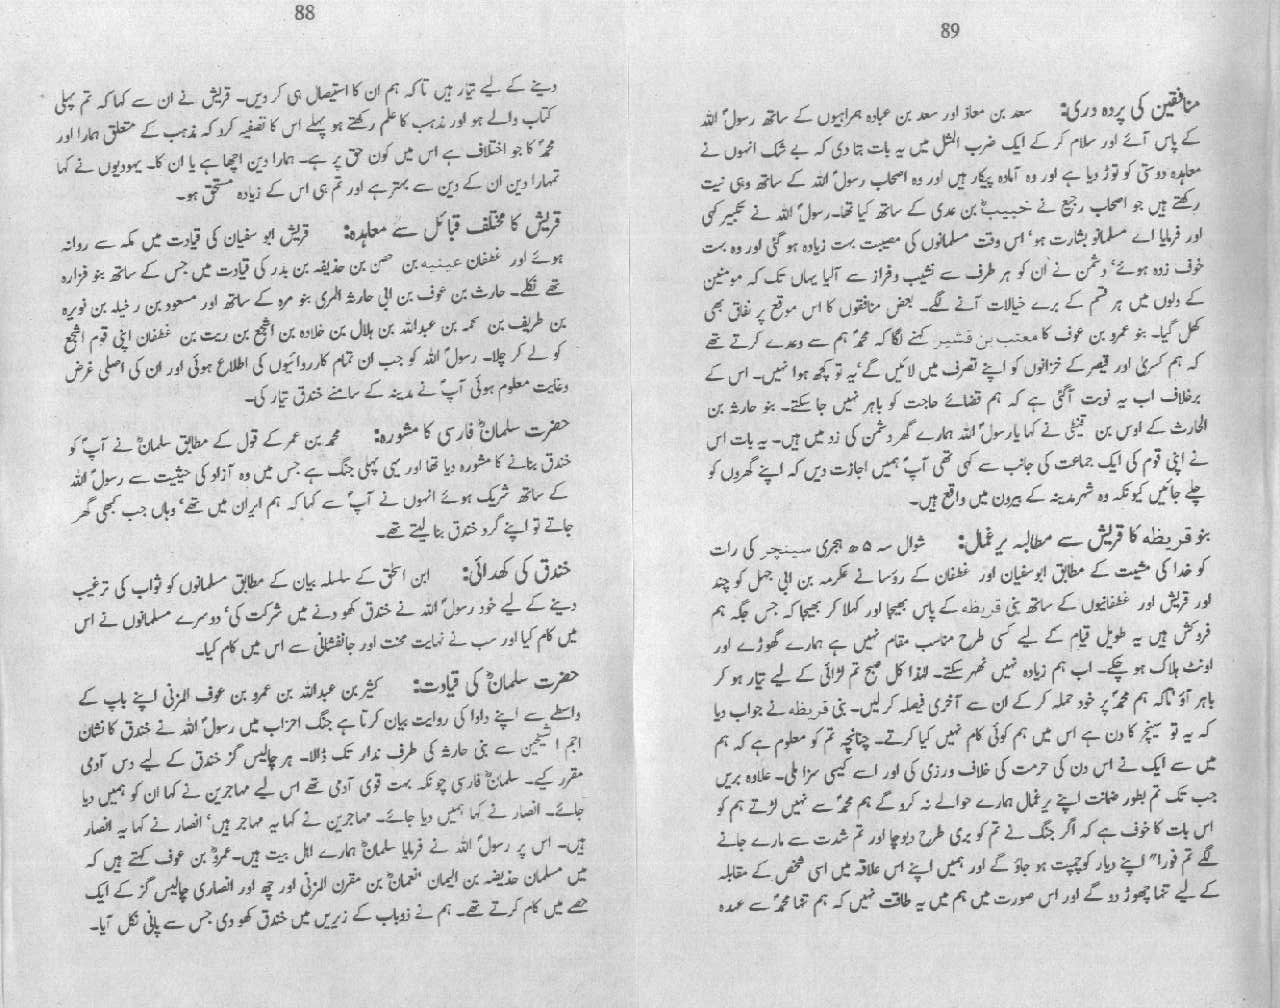 88
دینے کے لیے تیار ہیں تاکہ ہم ان کا استیصال ہی کر دیں۔ قریش نے ان سے کہا کہ تم پہلی
کتاب والے ہو اور مذہب کا علم رکھتے ہو پہلے اس کا تصفیہ کرد کہ مذہب کے متعلق ہمارا اور
محمدؐ کا جو اختلاف ہے اس میں کون حق پر ہے۔ ہمارا دین اچھا ہے یا ان کا۔ یہودیوں نے کہا
تمہارا دین ان کے دین سے بہتر ہے اور تم ہی اس کے زیادہ مستحق ہو۔
قریش کا مختلف قبائل سے معاہدہ: قریش ابو سفیان کی قیادت میں مکہ سے روانہ
ہوئے اور غطفان عینیه بن حصن بن حذیفہ بن بدر کی قیادت میں جس کے ساتھ بنو فزارہ
تھے نکلے۔ حارث بن عوف بن ابی حارثہ المری بنو مرہ کے ساتھ اور مسعود بن رخیلہ بن نویرہ
بن طریف بن سحمہ بن عبداللہ بن ہلال بن خلاوہ بن اشجع بن ریث بن غطفان اپنی قوم اشجع
کو لے کر چلا۔ رسولؐ اللہ کو جب ان تمام کارروائیوں کی اطلاع ہوئی اور ان کی اصلی غرض
وغایت معلوم ہوئی آپؐ نے مدینہ کے سامنے خندق تیار کی۔
حضرت سلمانؓ فارسی کا مشورہ: محمد بن عمر کے قول کے مطابق سلمانؓ نے آپؐ کو
خندق بنانے کا مشورہ دیا تھا اور یہی پہلی جنگ ہے جس میں وہ آزاد کی حیثیت سے رسولؐ اللہ
کے ساتھ شریک ہوئے انہوں نے آپؐ سے کہا کہ ہم ایران میں تھے‘ وہاں جب کبھی گھر
جاتے تو اپنے گرد خندق بنا لیتے تھے۔
خندق کی کھدائی: ابن اسحٰق کے سلسلہ بیان کے مطابق مسلمانوں کو ثواب کی ترغیب
دینے کے لیے خود رسولؐ اللہ نے خندق کھودنے میں شرکت کی‘ دوسرے مسلمانوں نے اس
میں کام کیا اور سب نے نہایت محنت اور جانفشانی سے اس میں کام کیا۔
حضرت سلمانؓ کی قیادت: کثیر بن عبداللہ بن عمرو بن عوف المزنی اپنے باپ کے
واسطے سے اپنے دادا کی روایت بیان کرتا ہے جنگ احزاب میں رسولؐ اللہ نے خندق کا نشان
اجم الشیخین سے بنی حارثہ کی طرف ندار تک ڈالا۔ ہر چالیس گز خندق کے لیے دس آدمی
مقرر کیے۔ سلمانؓ فارسی چونکہ بہت قوی آدمی تھے اس لیے مہاجرین نے کہا ان کو ہمیں دیا
جائے۔ انصار نے کہا ہمیں دیا جائے۔ مہاجرین نے کہا یہ مہاجر ہیں‘ انصار نے کہا یہ انصار
ہیں۔ اس پر رسولؐ اللہ نے فرمایا سلمانؓ ہمارے اہل بیت ہیں۔ عمروؓ بن عوف کہتے ہیں کہ
میں مسلمان حذیفہ بن الیمان‘ نعمانؓ بن مقرن المزنی اور چھ اور انصاری چالیس گز کے ایک
حصے میں کام کرتے تھے۔ ہم نے زوباب کے زیریں میں خندق کھودی جس سے پانی نکل آیا۔
89
منافقین کی پردہ دری: سعد بن معاذ اور سعد بن عبادہ ہمراہیوں کے ساتھ رسولؐ اللہ
کے پاس آئے اور سلام کر کے ایک ضرب المثل میں یہ بات بتا دی کہ بے شک انہوں نے
معاہدہ دوستی کو توڑ دیا ہے اور وہ آمادہ پیکار ہیں اور وہ اصحاب رسولؐ اللہ کے ساتھ وہی نیت
رکھتے ہیں جو اصحاب رجیع نے خبیبؓ بن عدی کے ساتھ کیا تھا۔ رسولؐ اللہ نے تکبیر کہی
اور فرمایا اے مسلمانو بشارت ہو‘ اس وقت مسلمانوں کی مصیبت بہت زیادہ ہو گئی اور وہ بہت
خوف زدہ ہوئے‘ دشمن نے ان کو ہر طرف سے نشیب و فراز سے آلیا یہاں تک کہ مومنین
کے دلوں میں ہر قسم کے برے خیالات آنے لگے۔ بعض منافقوں کا اس موقع پر نفاق بھی
کھل گیا۔ بنو عمرو بن عوف کا معتب بن قشیر کہنے لگا کہ محمدؐ ہم سے وعدے کرتے تھے
کہ ہم کسریٰ اور قیصر کے خزانوں کو اپنے تصرف میں لائیں گے‘ یہ تو کچھ ہوا نہیں۔ اس کے
برخلاف اب یہ نوبت آگئی ہے کہ ہم قضائے حاجت کو باہر نہیں جا سکتے۔ بنو حارثہ بن
الحارث کے اوس بن قیظی نے کہا یا رسولؐ اللہ ہمارے گھر دشمن کی زد میں ہیں۔ یہ بات اس
نے اپنی قوم کی ایک جماعت کی جانب سے کہی تھی آپؐ ہمیں اجازت دیں کہ اپنے گھروں کو
چلے جائیں کیونکہ وہ شہر مدینہ کے بیرون میں واقع ہیں۔
بنو قریظه کا قریش سے مطالبہ یرغمال: شوال سہ ۵ھ ہجری سینچر کی رات
کو خدا کی مشیت کے مطابق ابو سفیان اور غطفان کے رؤسا نے عکرمہ بن ابی جہل کو چند
اور قریش اور غطفانیوں کے ساتھ بنی قریظه کے پاس بھیجا اور کہلا کر بھیجا کہ جس جگہ ہم
فروکش ہیں یہ طویل قیام کے لیے کسی طرح مناسب مقام نہیں ہے ہمارے گھوڑے اور
اونٹ ہلاک ہو چکے۔ اب ہم زیادہ نہیں ٹھہر سکتے۔ لہٰذا کل صبح تم لڑائی کے لیے تیار ہو کر
باہر آؤ تاکہ ہم محمدؐ پر خود حملہ کر کے ان سے آخری فیصلہ کرلیں۔ بنی قریظه نے جواب دیا
کہ یہ تو سینچر کا دن ہے اس میں ہم کوئی کام نہیں کیا کرتے۔ چنانچہ تم کو معلوم ہے کہ ہم
میں سے ایک نے اس دن کی حرمت کی خلاف ورزی کی اور اسے کیسی سزا ملی۔ علاوہ بریں
جب تک تم بطور ضمانت اپنے یرغمال ہمارے حوالے نہ کرو گے ہم محمدؐ سے نہیں لڑتے ہم کو
اس بات کا خوف ہے کہ اگر جنگ نے تم کو بری طرح دبوچا اور تم شدت سے مارے جانے
لگے تم فوراً اپنے دیار کو چمپت ہو جاؤ گے اور ہمیں اپنے اس علاقہ میں اسی شخص کے مقابلہ
کے لیے تنہا چھوڑ دو گے اور اس صورت میں ہم میں یہ طاقت نہیں کہ ہم تنہا محمدؐ سے عہدہ